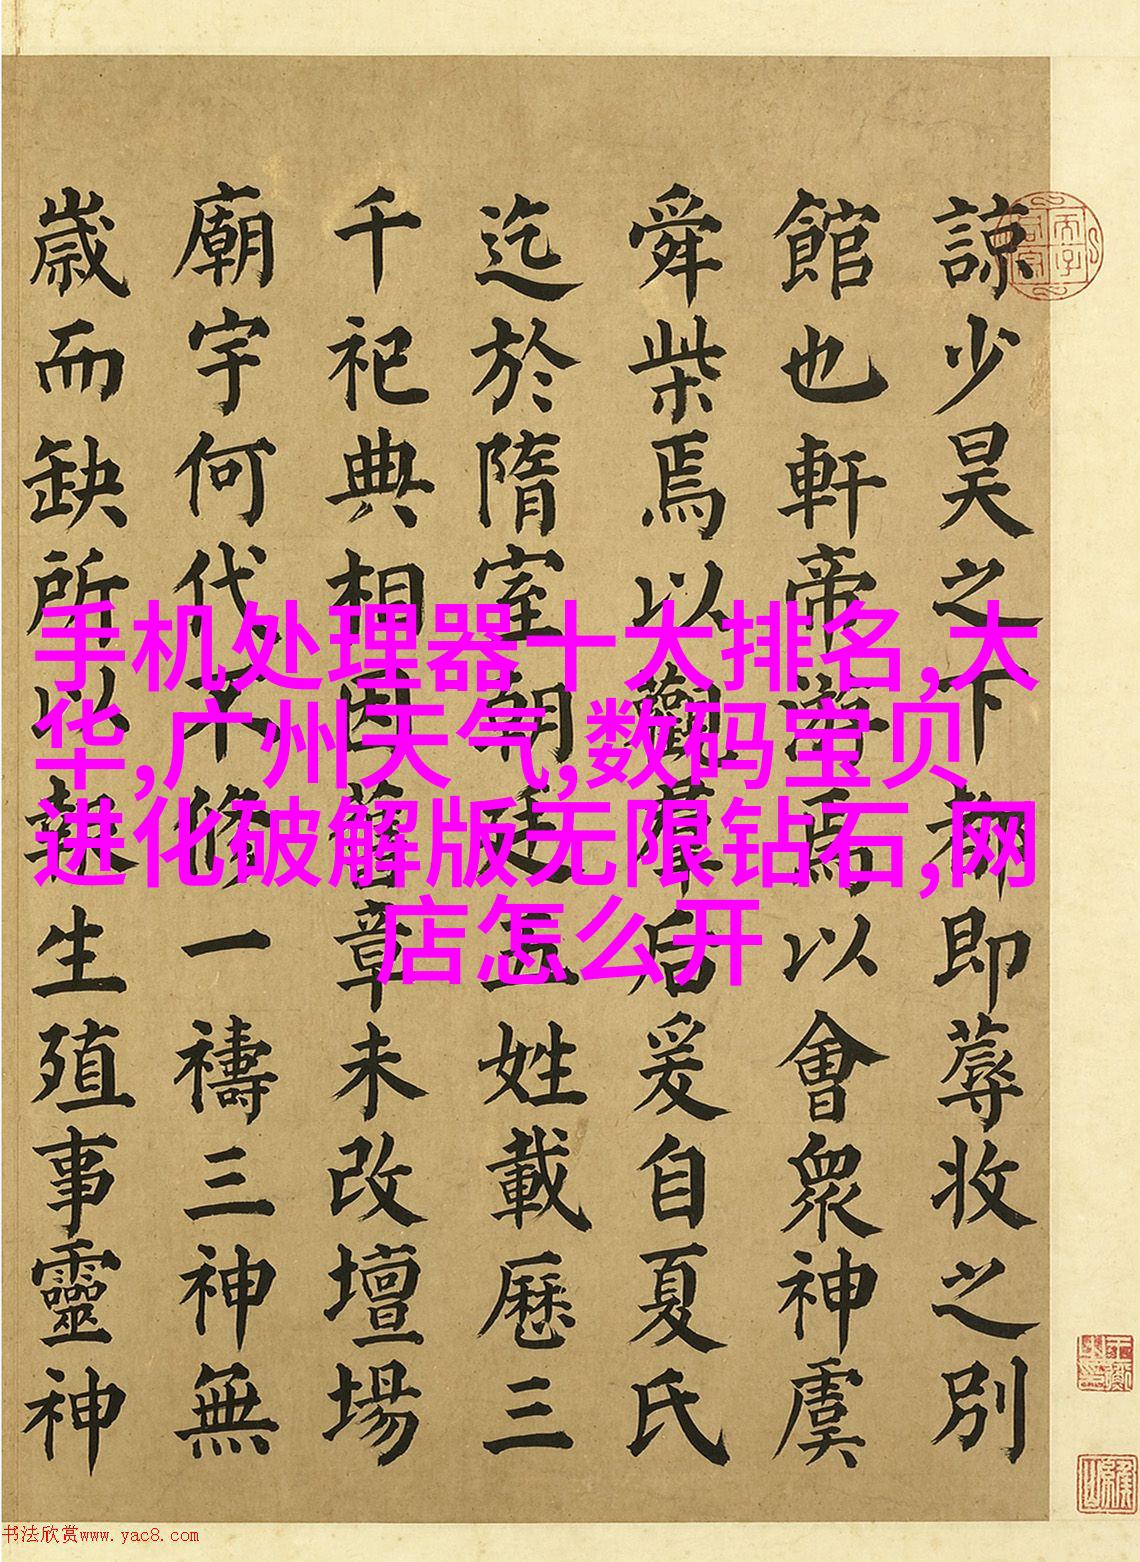 諒少昊之下都即蓐收之別
館也軒帝游焉以會衆神虞
舜柴焉以覲羣后爰自夏氏
迄於隋室朝廷五姓載歷三
千祀典相因舊章未改壇場
廟宇何代不修一禱三神無
歲而缺所以報生殖事靈神
手机处理器十大排名,大
华,广州天气,数码宝贝
进化破解版无限钻石,网
店怎么开
书法欣赏www.yac8.com